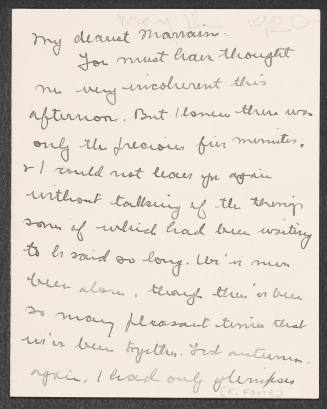 May K. 1920
My dearest Marraine.
You must have thought
me very incoherent this
afternoon. But I knew there was
only the precious five minutes.
& I could not leave you again
without talking of the things
some of which had been waiting
to be said so long. We've never
been alone, though there've been
so many pleasant times that
we've been together. Last autumn.
again, I had only glimpses